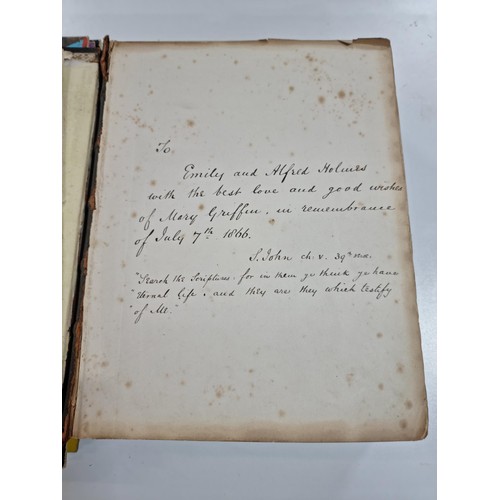 To
Emily and Alfred Holmes
with the best love and good wishes
of Mary Griffin, in remembrance
of July 7th 1866.
S. John ch. v. 39th ver.
"Search the Scriptures: for in them ye think ye have
"eternal life, and they are they which testify
"of Me."